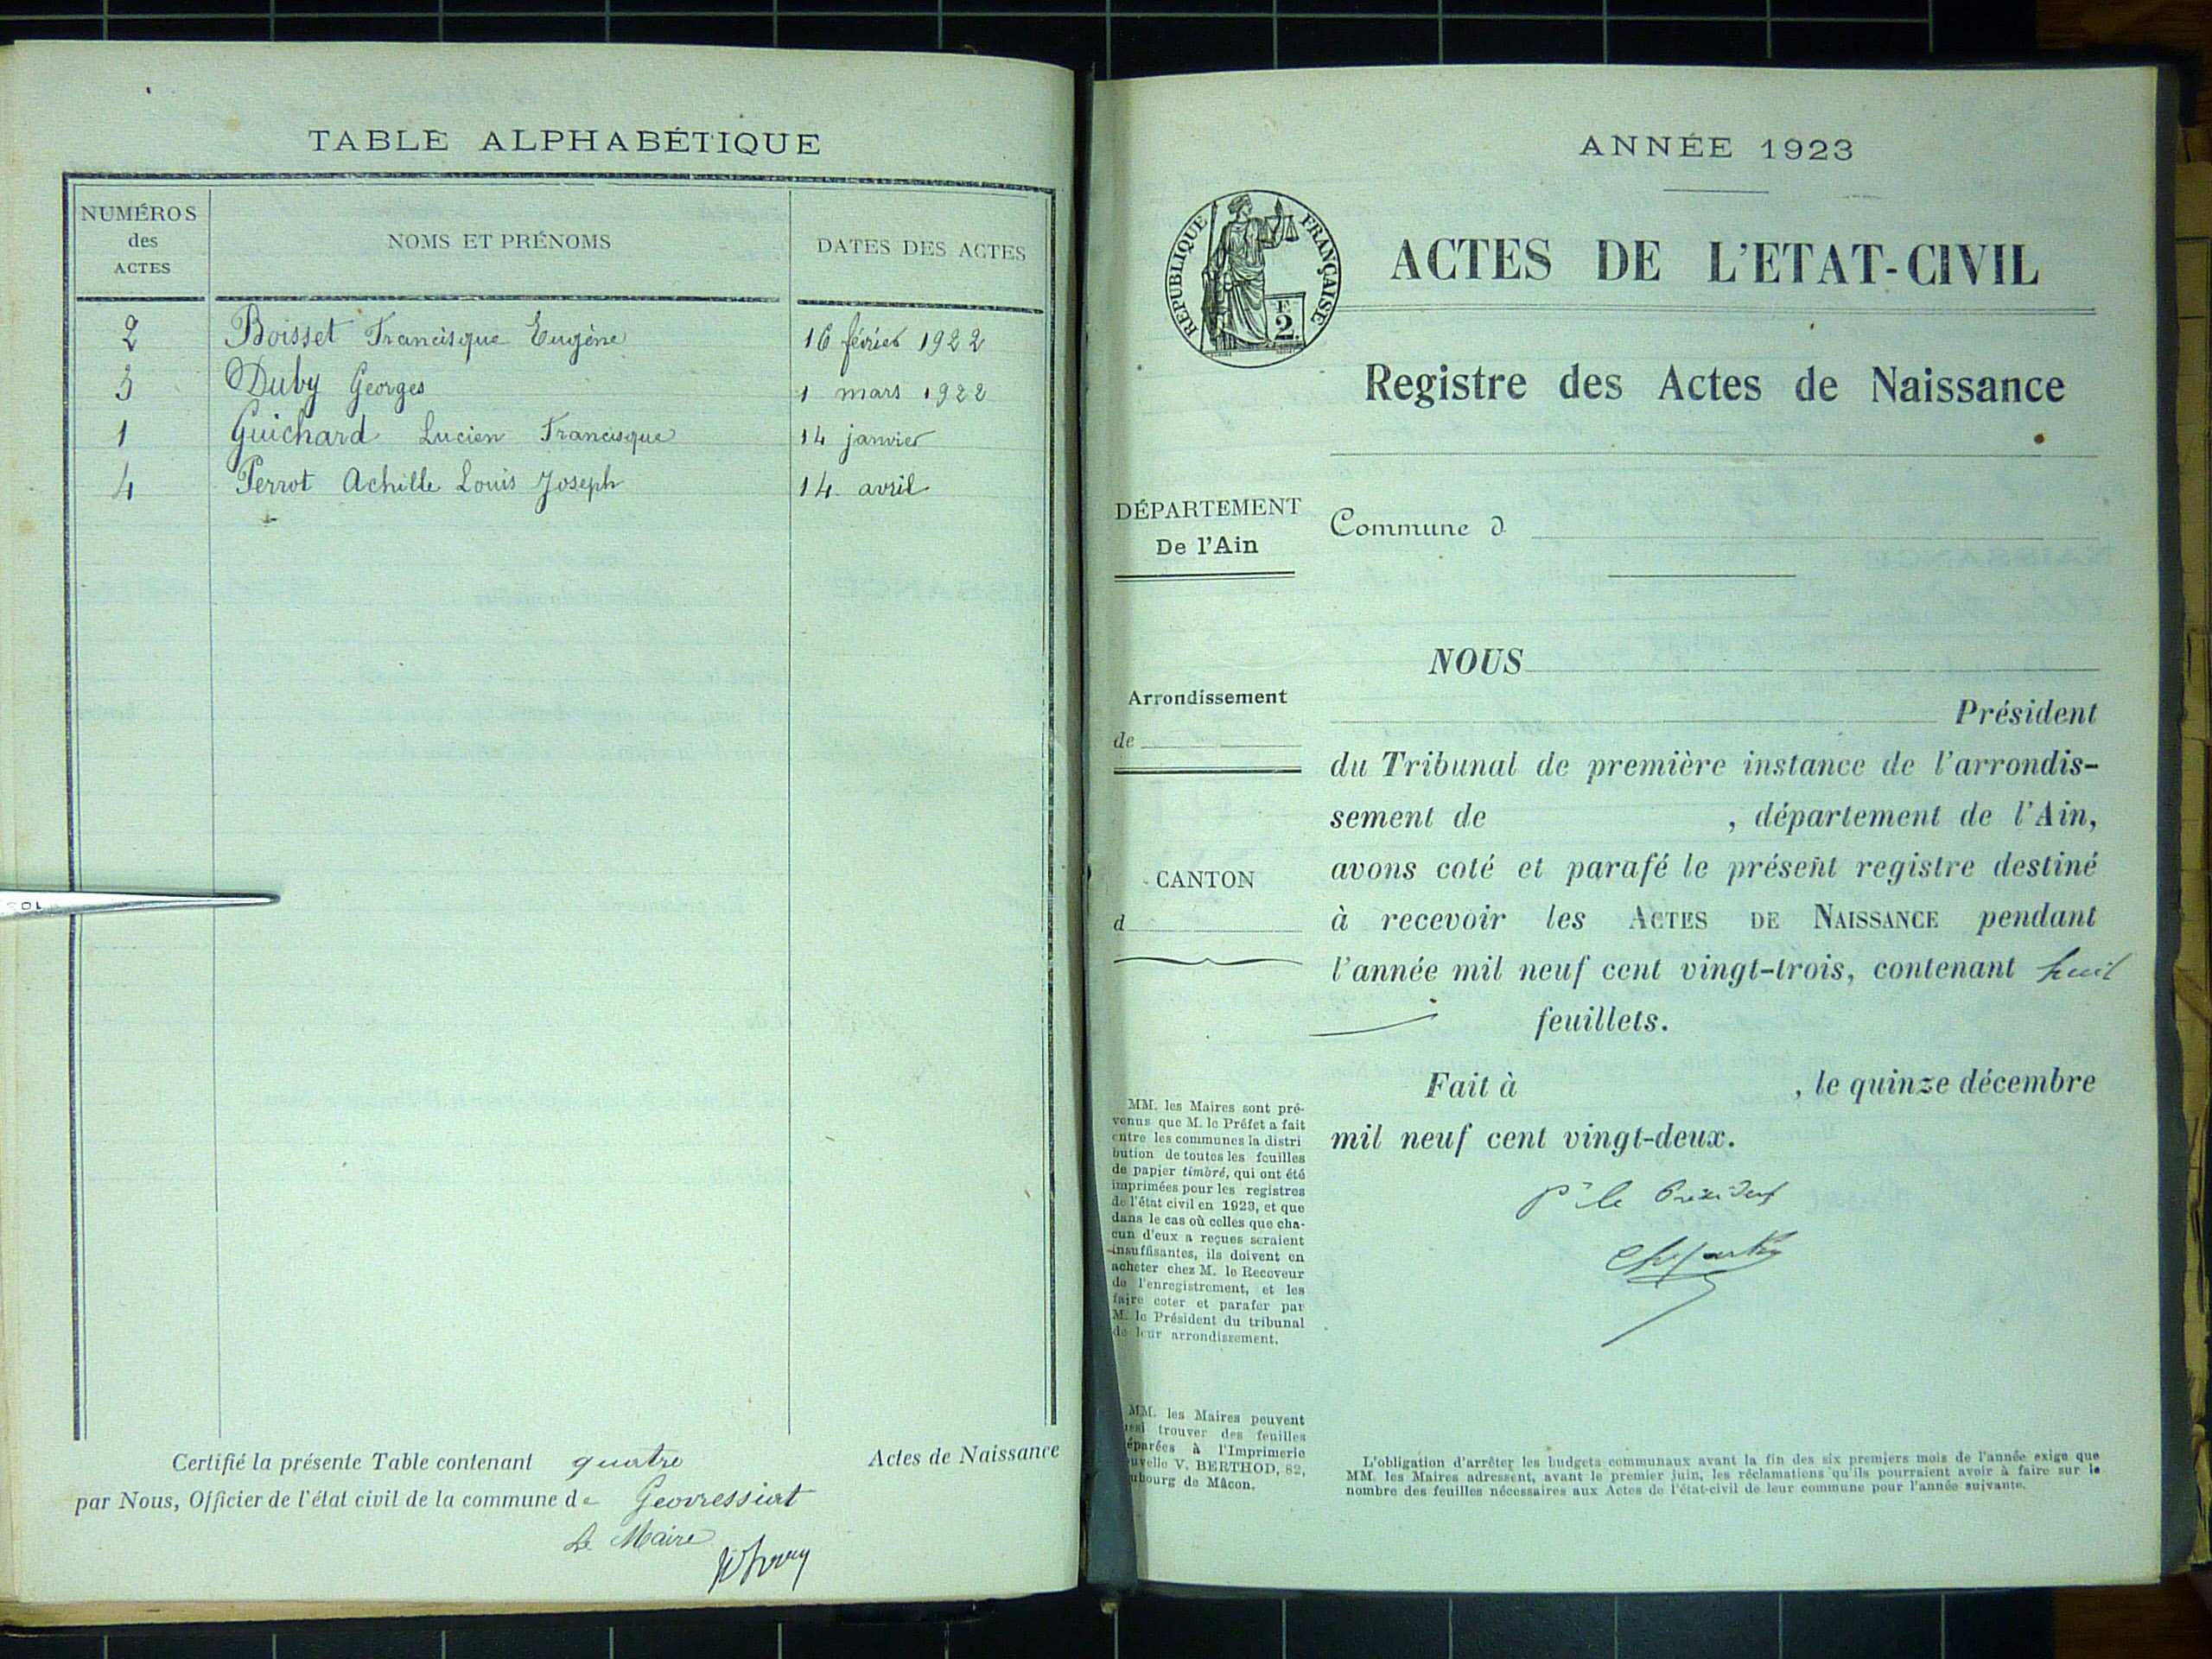 TABLE ALPHABÉTIQUE
NUMÉROS
des
ACTES
NOMS ET PRÉNOMS
DATES DES ACTES
2 Boisset Francisque Eugène 16 février 1922
3 Duby Georges 1 mars 1922
1 Guichard Lucien Francisque 14 janvier
4 Perrot Achille Louis Joseph 14 avril
Certifié la présente Table contenant quatre Actes de Naissance
par Nous, Officier de l'état civil de la commune de Geovressiat
Le Maire
ANNÉE 1923
RÉPUBLIQUE FRANÇAISE
E
2
ACTES DE L'ETAT-CIVIL
Registre des Actes de Naissance
DÉPARTEMENT
De l'Ain
Commune d
Arrondissement
de
CANTON
d
NOUS
Président
du Tribunal de première instance de l'arrondis-
sement de , département de l'Ain,
avons coté et parafé le présent registre destiné
à recevoir les ACTES DE NAISSANCE pendant
l'année mil neuf cent vingt-trois, contenant huit
feuillets.
Fait à , le quinze décembre
mil neuf cent vingt-deux.
pr le Président
MM. les Maires sont pré-
venus que M. le Préfet a fait
entre les communes la distri
bution de toutes les feuilles
de papier timbré, qui ont été
imprimées pour les registres
de l'état civil en 1923, et que
dans le cas où celles que cha-
cun d'eux a reçues seraient
insuffisantes, ils doivent en
acheter chez M. le Receveur
de l'enregistrement, et les
faire coter et parafer par
M. le Président du tribunal
de leur arrondissement.
MM. les Maires peuvent
ussi trouver des feuilles
éparées à l'Imprimerie
uvelle V. BERTHOD, 82,
ubourg de Mâcon.
L'obligation d'arrêter les budgets communaux avant la fin des six premiers mois de l'année exige que
MM. les Maires adressent, avant le premier juin, les réclamations qu'ils pourraient avoir à faire sur le
nombre des feuilles nécessaires aux Actes de l'état-civil de leur commune pour l'année suivante.